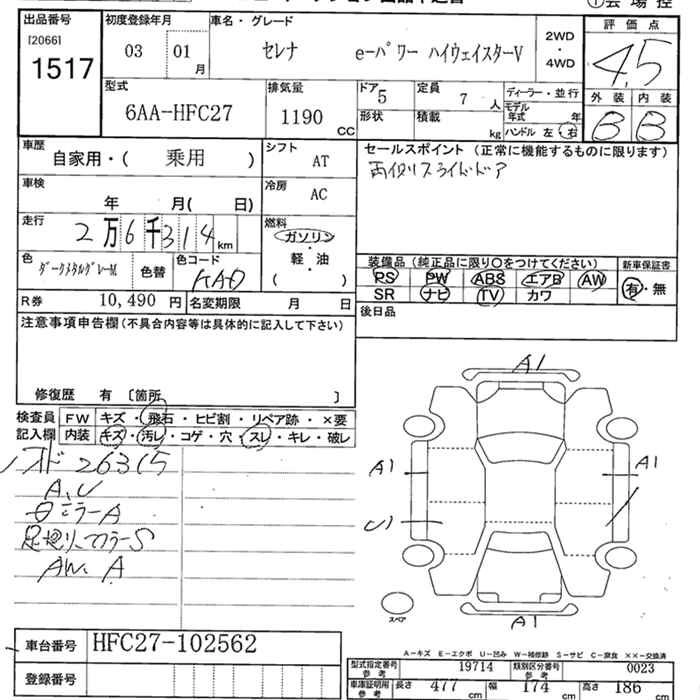 出品番号
[2066]
1517
初度登録年月
03 01 月
車名・グレード
セレナ eーパワー ハイウェイスターV
2WD
・
4WD
評価点
4.5
外装 内装
B B
型式
6AA-HFC27
排気量
1190 CC
ドア 5
形状
定員 7 人
積載 kg
ディーラー・並行
モデル年式 年
ハンドル 左・右
車歴
自家用・( 乗用 )
シフト
AT
車検
年 月( 日)
冷房
AC
走行
2万6千314 km
燃料
ガソリン
軽・油
( )
色
ダークメタルグレーM
色替
色コード
KAD
R券 10,490 円 名変期限 月 日
セールスポイント(正常に機能するものに限ります)
両側スライドドア
装備品(純正品に限り○をつけてください)
PS PW ABS エアB AW
SR ナビ TV カワ
新車保証書
有・無
後日品
注意事項申告欄(不具合内容等は具体的に記入して下さい)
修復歴 有 〔箇所 〕
検査員
記入欄
FW キズ・飛石・ヒビ割・リペア跡・×要
内装 キズ・汚レ・コゲ・穴・スレ・キレ・破レ
26315
A、U
ミラーA
マフラーS
AW、A
A1
A1
A1
U1
A1
スペア
A-キズ E-エクボ U-凹み W-補修跡 S-サビ C-腐食 ××-交換済
車台番号 HFC27-102562
登録番号
型式指定番号 参考 19714 類別区分番号 参考 0023
車庫証明用 参考 長さ 477 cm 幅 174 cm 高さ 186 cm